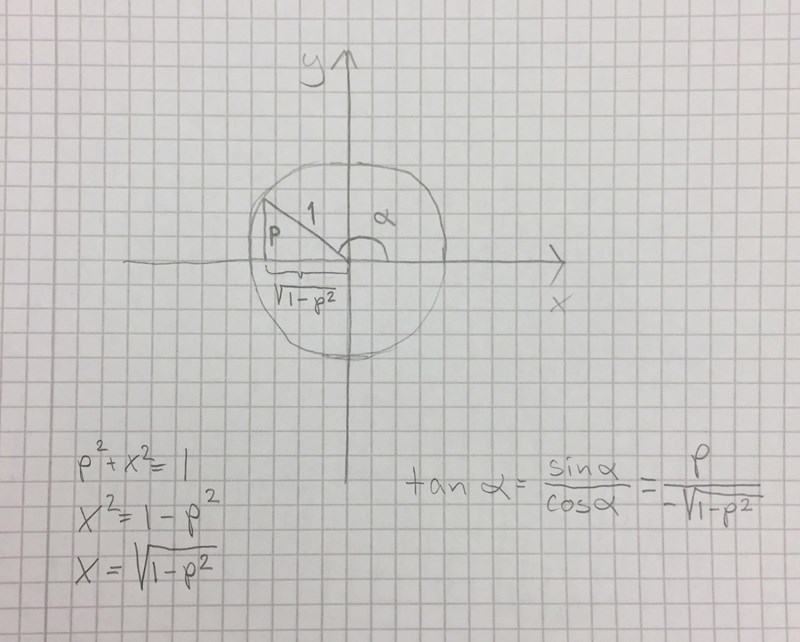 y
1
α
p
√1-p²
x
p²+x²=1
x²=1-p²
x=√1-p²
tan α = sinα/cosα = p/-√1-p²